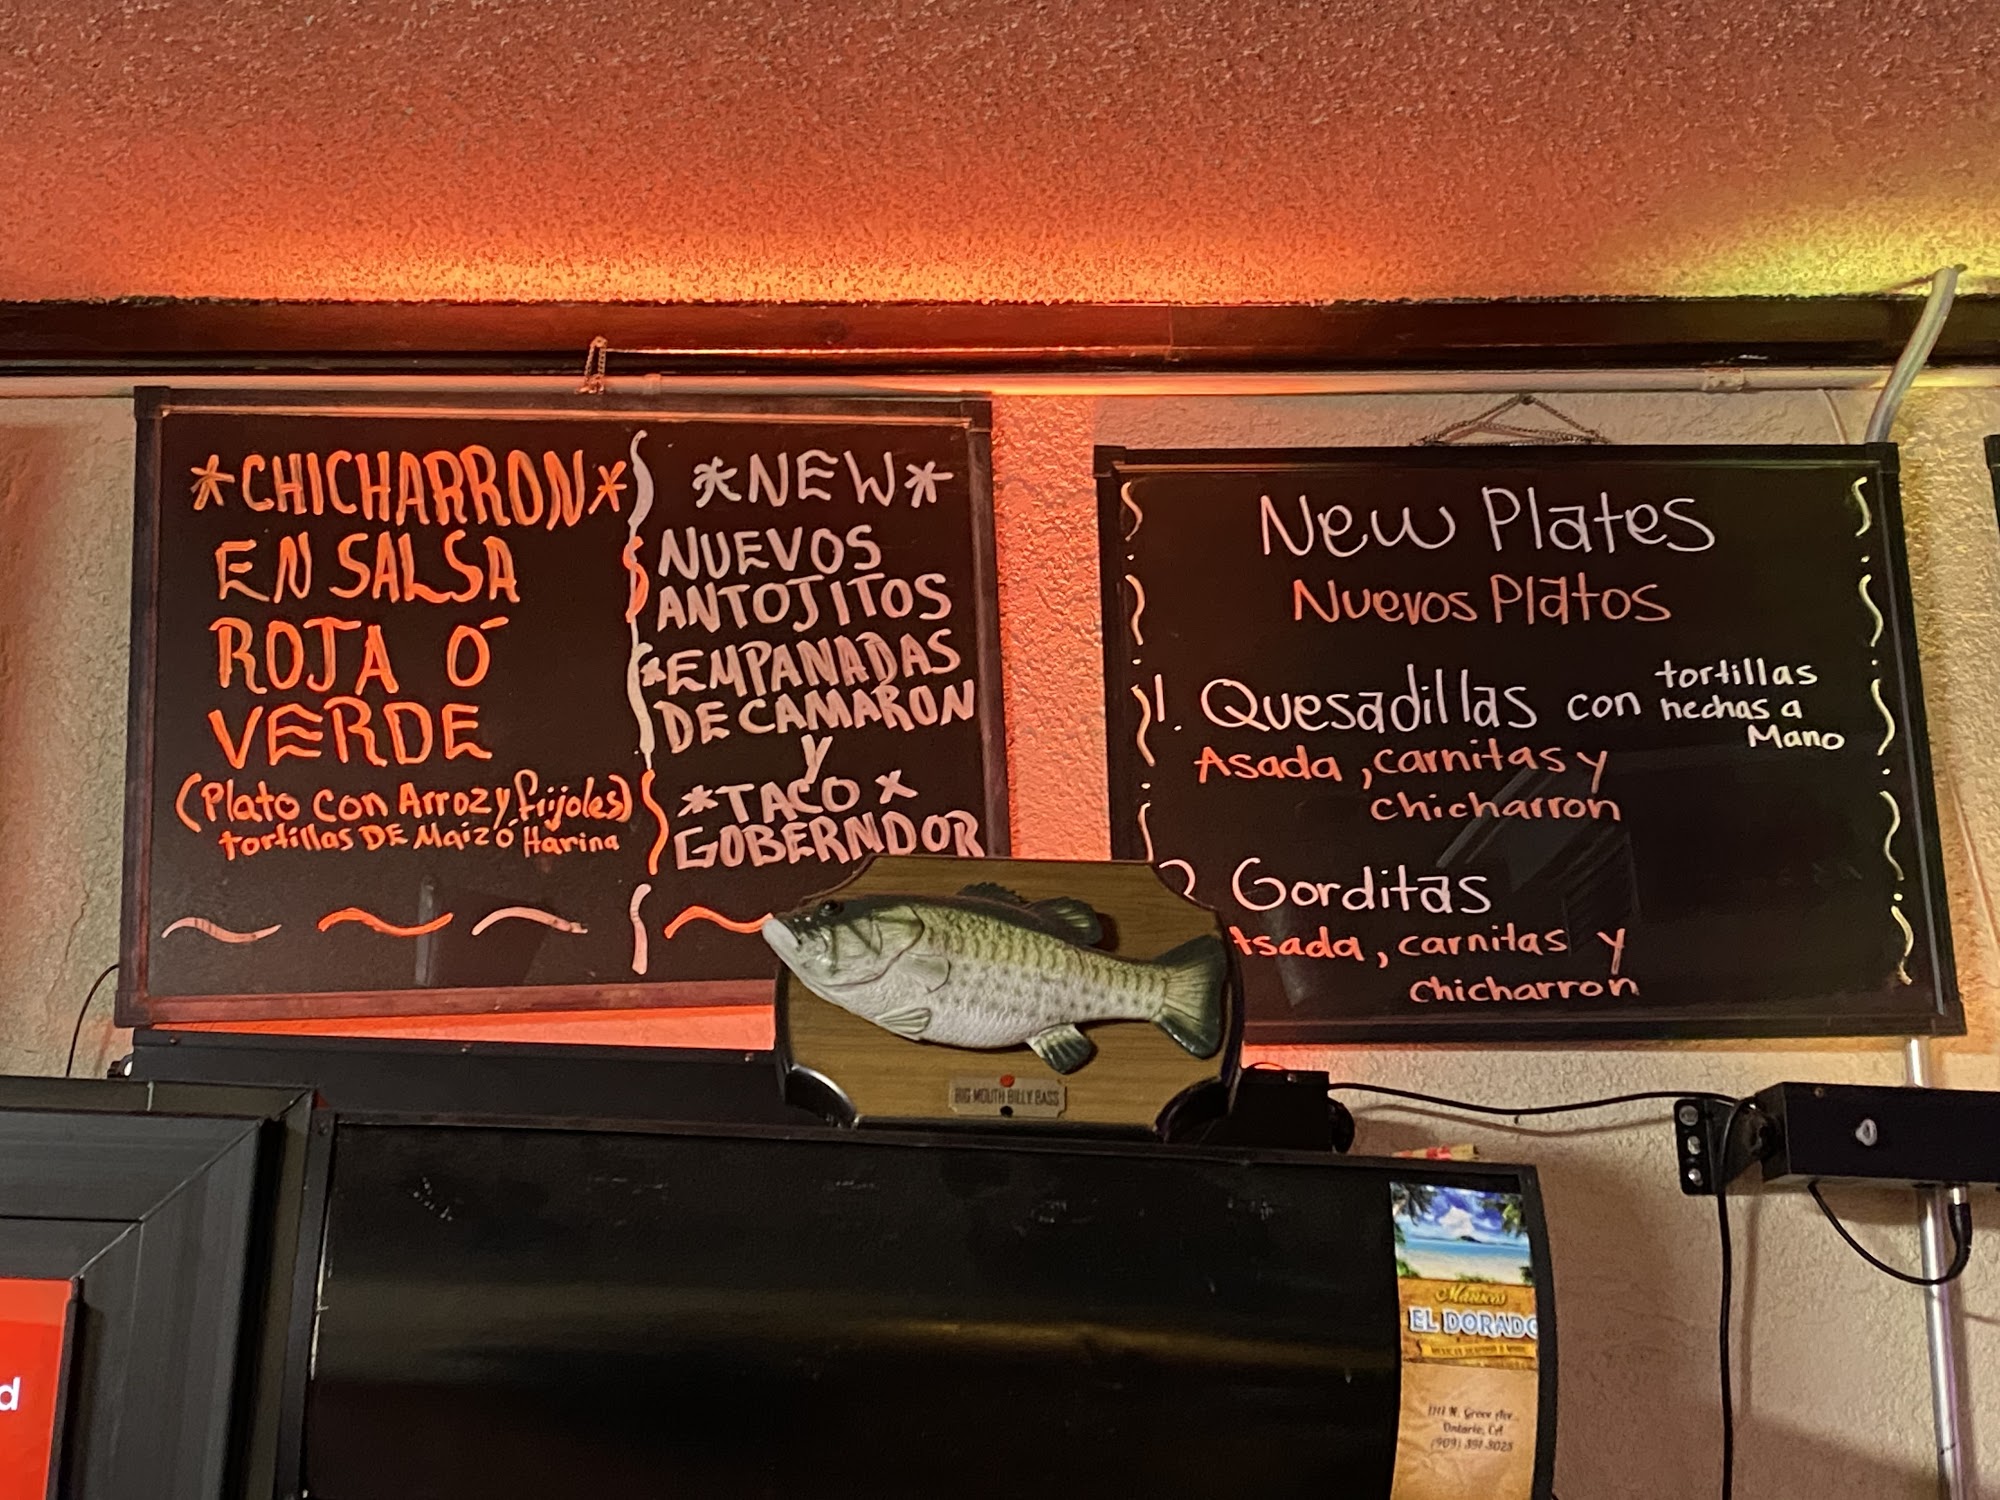 *CHICHARRON*
EN SALSA
ROJA Ó
VERDE
(Plato con Arroz y frijoles)
tortillas DE Maiz ó Harina
*NEW*
NUEVOS
ANTOJITOS
*EMPANADAS
DE CAMARON
y
*TACO x
GOBERNDOR
New Plates
Nuevos Platos
1. Quesadillas con tortillas
hechas a
Mano
Asada, carnitas y
chicharron
2 Gorditas
Asada, carnitas y
chicharron
BIG MOUTH BILLY BASS
Mariscos
EL DORADO
1111 N. Grove Ave.
Ontario, CA
(909) 391-3025
d